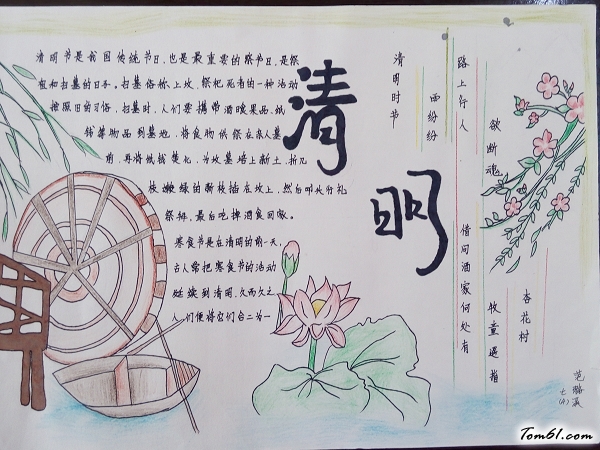 清明节是我国传统节日,也是最重要的祭节日,是祭
祖和扫墓的日子。扫墓俗称上坟,祭祀死者的一种活动
按照旧的习俗,扫墓时,人们要携带酒食果品,纸
钱等物品到墓地,将食物供祭在亲人墓
前,再将纸钱焚化,为坟墓培上新土,折几
枝嫩绿的新枝插在坟上,然后叩头行礼
祭拜,最后吃掉酒食回家。
寒食节是在清明的前一天,
古人常把寒食节的活动
延续到清明,久而久之
人们便将它们合二为一
清明
清明时节
雨纷纷
路上行人
欲断魂
借问酒家何处有
牧童遥指
杏花村
Tom61.com